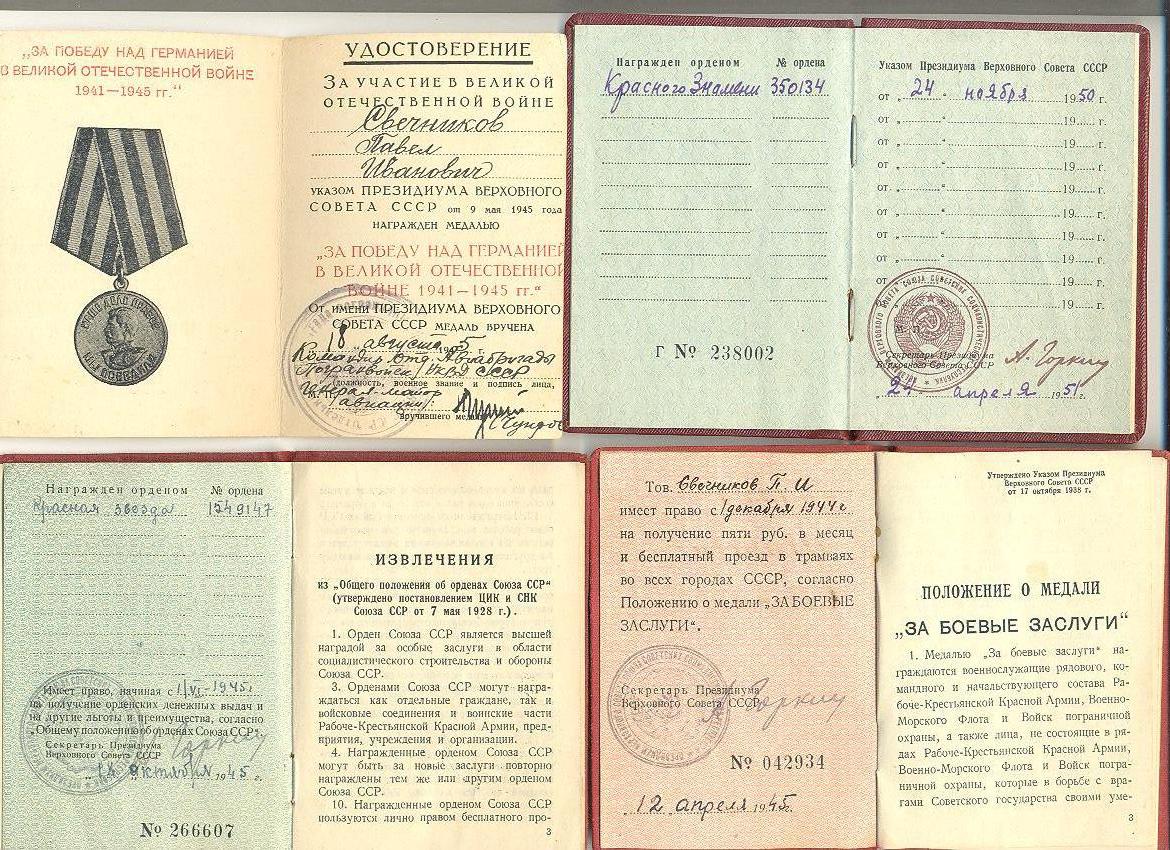 „ЗА ПОБЕДУ НАД ГЕРМАНИЕЙ
В ВЕЛИКОЙ ОТЕЧЕСТВЕННОЙ ВОЙНЕ
1941—1945 гг.“
НАШЕ ДЕЛО ПРАВОЕ
МЫ ПОБЕДИЛИ
УДОСТОВЕРЕНИЕ
ЗА УЧАСТИЕ В ВЕЛИКОЙ
ОТЕЧЕСТВЕННОЙ ВОЙНЕ
Свечников
Павел
Иванович
УКАЗОМ ПРЕЗИДИУМА ВЕРХОВНОГО
СОВЕТА СССР от 9 мая 1945 года
НАГРАЖДЕН МЕДАЛЬЮ
„ЗА ПОБЕДУ НАД ГЕРМАНИЕЙ
В ВЕЛИКОЙ ОТЕЧЕСТВЕННОЙ
ВОЙНЕ 1941—1945 гг.“
От ИМЕНИ ПРЕЗИДИУМА ВЕРХОВНОГО
СОВЕТА СССР МЕДАЛЬ ВРУЧЕНА
18 августа 1945 г.
Командир Отд. Авиабригады
Погранвойск НКВД СССР
(должность, военное звание и подпись лица,
М. П. Генерал-майор
авиации
вручившего
Награжден орденом № ордена
Красного Знамени 350134
Г № 238002
Указом Президиума Верховного Совета СССР
от „ 24 “ ноября 1950 г.
от „ “ 19 г.
от „ “ 19 г.
от „ “ 19 г.
от „ “ 19 г.
от „ “ 19 г.
от „ “ 19 г.
от „ “ 19 г.
от „ “ 19 г.
от „ “ 19 г.
М. П.
Секретарь Президиума
Верховного Совета СССР А. Горкин
„ 24 апреля 1951 г.
Награжден орденом № ордена
Красная звезда 1549147
Имеет право, начиная с 1/VI-1945г.
на получение орденских денежных выдач и
на другие льготы и преимущества, согласно
„Общему положению об орденах Союза ССР“.
Секретарь Президиума
Верховного Совета СССР Горкин
„ 14 октября 1945 г.
№ 266607
ИЗВЛЕЧЕНИЯ
из „Общего положения об орденах Союза ССР“
(утверждено постановлением ЦИК и СНК
Союза ССР от 7 мая 1928 г.).
1. Орден Союза ССР является высшей
наградой за особые заслуги в области
социалистического строительства и обороны
Союза ССР.
3. Орденами Союза ССР могут награ-
ждаться как отдельные граждане, так и
войсковые соединения и воинские части
Рабоче-Крестьянской Красной Армии, пред-
приятия, учреждения и организации.
4. Награжденные орденом Союза ССР
могут быть за новые заслуги повторно
награждены тем же или другим орденом
Союза ССР.
10. Награжденные орденом Союза ССР
пользуются лично правом бесплатного про-
3
Тов. Свечников П. И
имеет право с 1 декабря 1944 г
на получение пяти руб. в месяц
и бесплатный проезд в трамваях
во всех городах СССР, согласно
Положению о медали „ЗА БОЕВЫЕ
ЗАСЛУГИ“.
Секретарь Президиума
Верховного Совета СССР А. Горкин
№ 042934
„12 апреля 1945г.
Утверждено Указом Президиума
Верховного Совета СССР
от 17 октября 1938 г.
ПОЛОЖЕНИЕ О МЕДАЛИ
„ЗА БОЕВЫЕ ЗАСЛУГИ“
1. Медалью „За боевые заслуги“ на-
граждаются военнослужащие рядового, ко-
мандного и начальствующего состава Ра-
боче-Крестьянской Красной Армии, Военно-
Морского Флота и Войск пограничной
охраны, а также лица, не состоящие в ря-
дах Рабоче-Крестьянской Красной Армии,
Военно-Морского Флота и Войск погра-
ничной охраны, которые в борьбе с вра-
гами Советского государства своими уме-
3